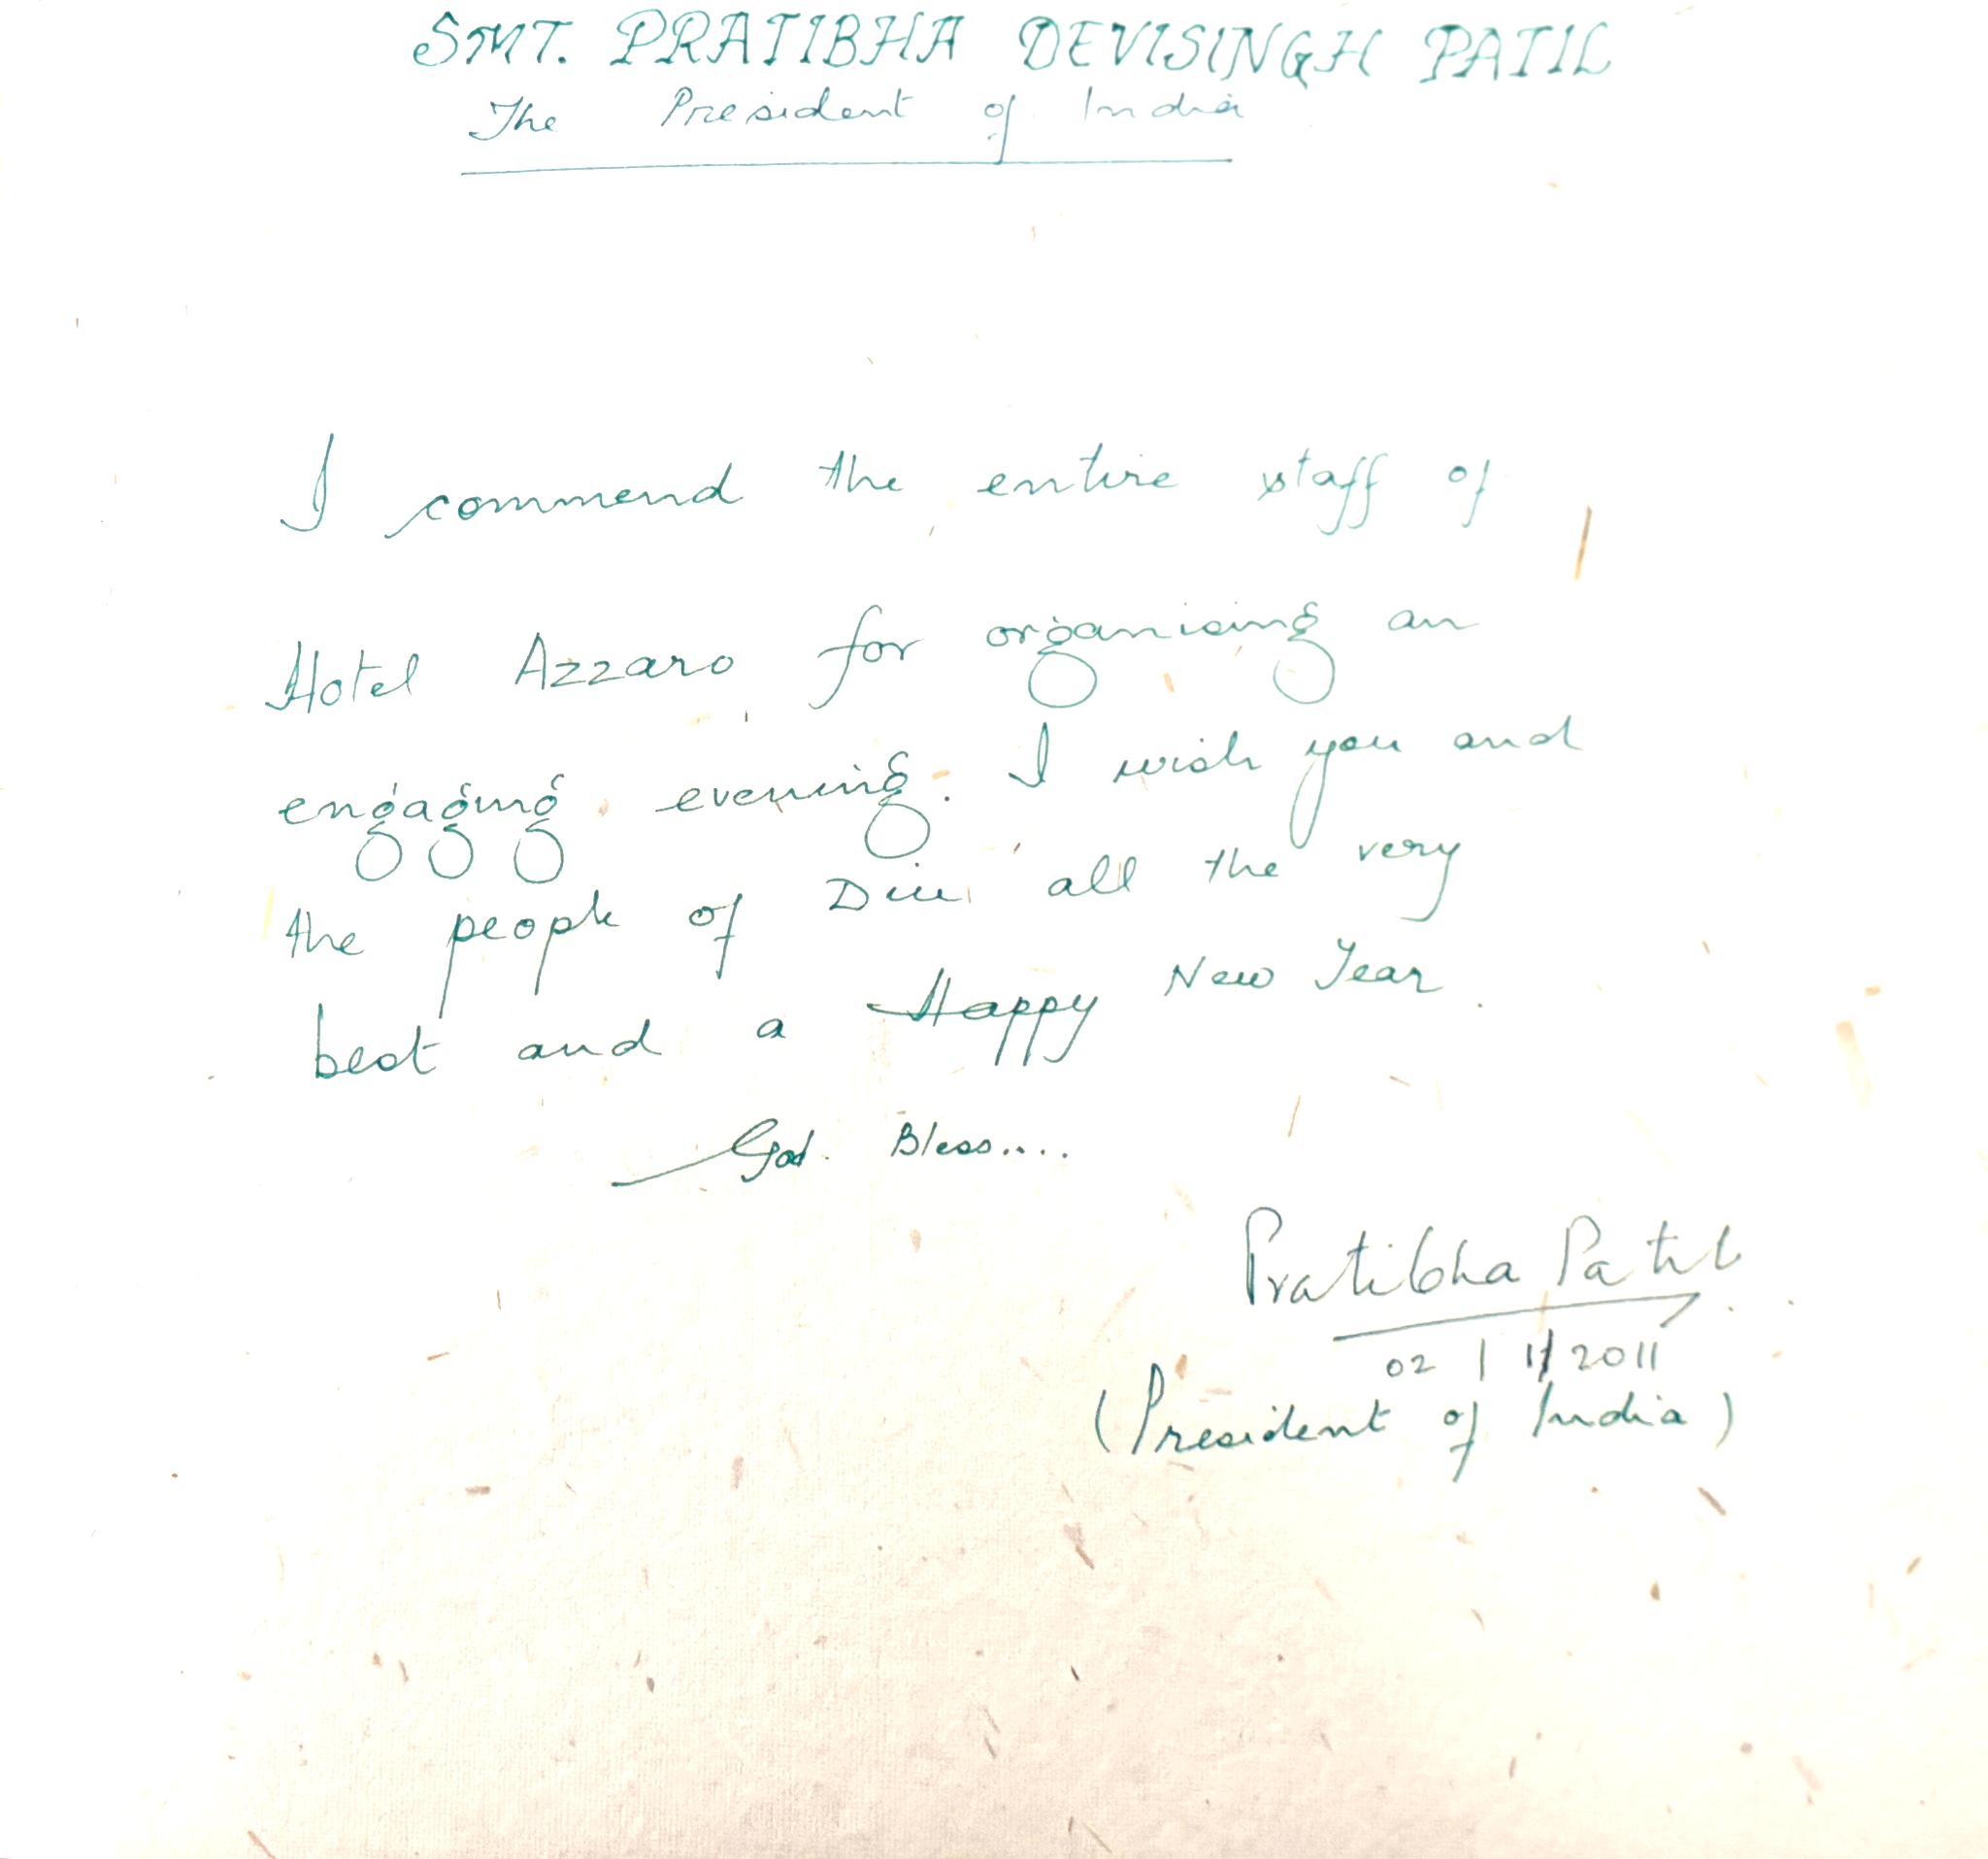 SMT. PRATIBHA DEVISINGH PATIL
The President of India
I commend the entire staff of
Hotel Azzaro for organising an
engaging evening. I wish you and
the people of Diu all the very
best and a Happy New Year.
God Bless....
Pratibha Patil
02 / 1/ 2011
(President of India)